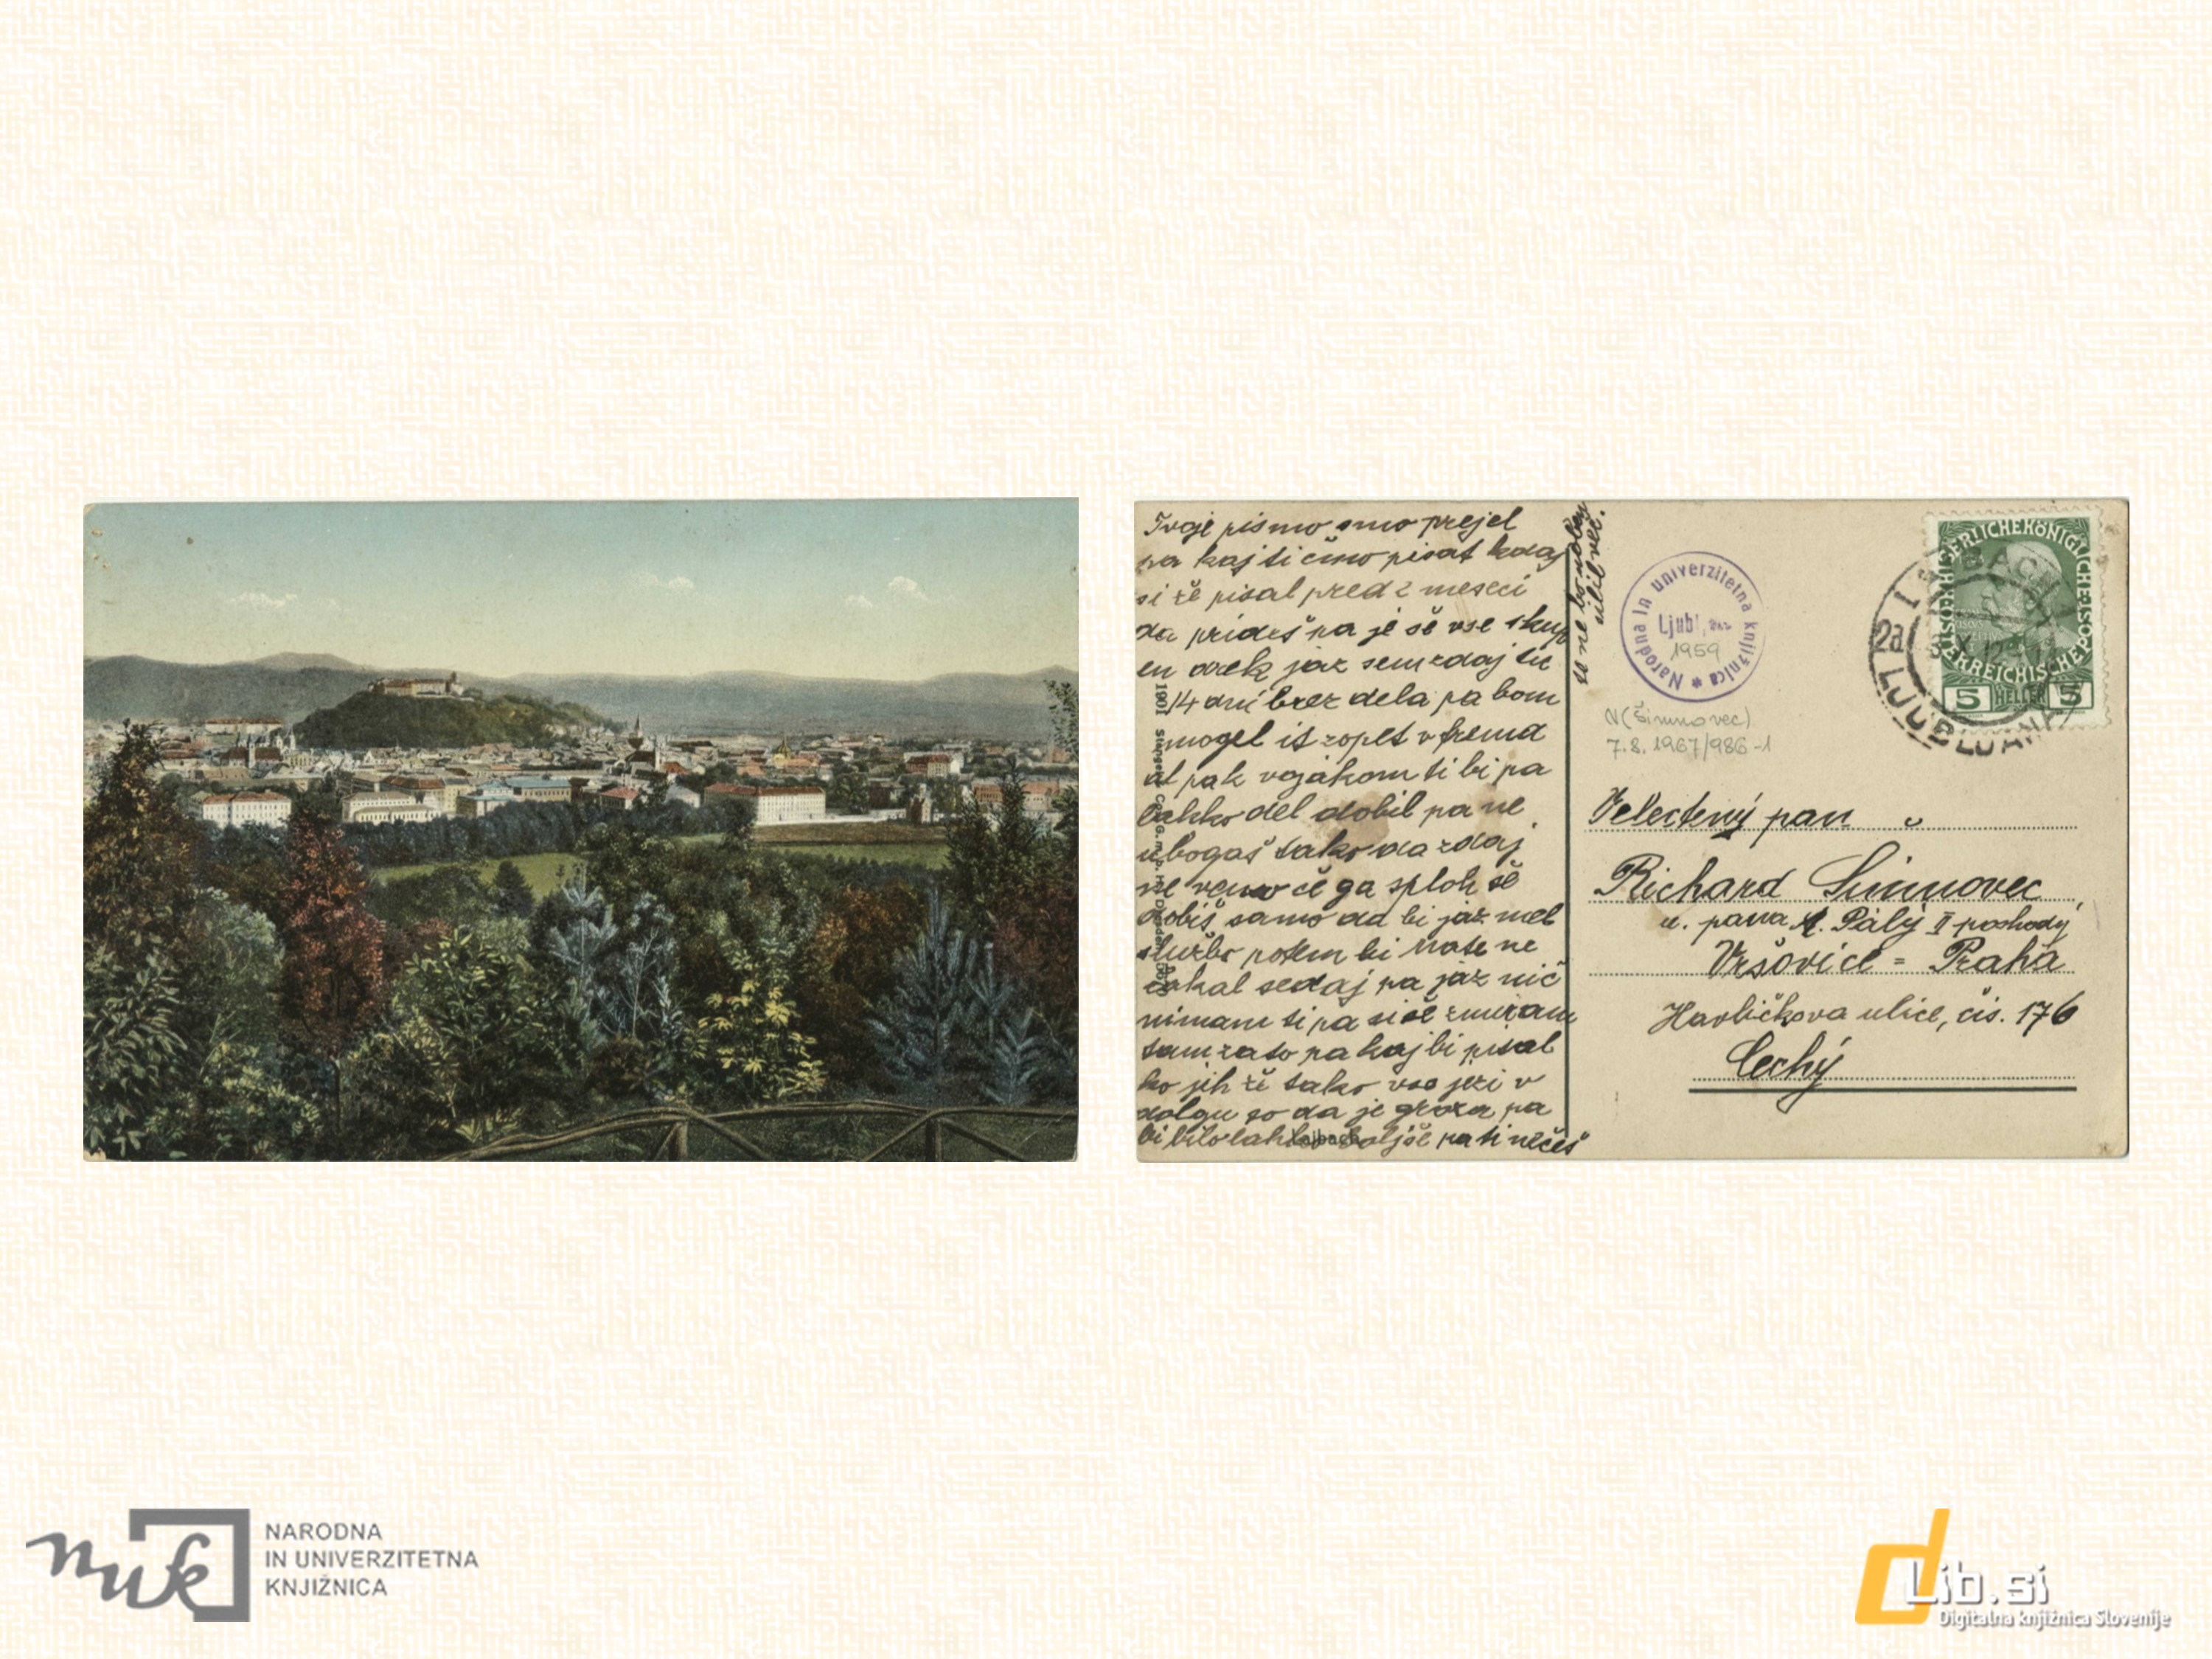 Tvoje pismo smo prejel
pa kaj ti čmo pisat kdaj
si že pisal pred 2 meseci
da prideš pa je še vse skup
en drek jaz sem zdaj tu
14 dni brez dela pa bom
mogel it zopet v fremd
al pak vojakom ti bi pa
lahko del dobil pa ne
ubogaš tako da zdaj
ne vemo če ga sploh še
dobiš samo da bi jaz mel
službo potem bi Mate ne
čakal sedaj pa jaz nič
nimam ti pa si še zmiram
tam zato pa kaj bi pisal
ko jih že tako vse jezi v
dolgu so da je groza pa
bi bilo lahko boljše pa ti nečeš
se ne bo
več.
1901
Laibach
Narodna in univerzitetna knjižnica
Ljubljana
1959
N (Šimnovec)
7.8.1967/986-1
LAIBACH
2a
LJUBLJANA
KAISERLICHE KÖNIGLICHE
ÖSTERREICHISCHE POST
5 HELLER 5
Velectený pan
Richard Šimnovec
u. pana A. Pálý II poshodý
Vršovice = Praha
Havličkova ulice, čis. 176
Čechý
nuk
NARODNA
IN UNIVERZITETNA
KNJIŽNICA
dLib.si
Digitalna knjižnica Slovenije